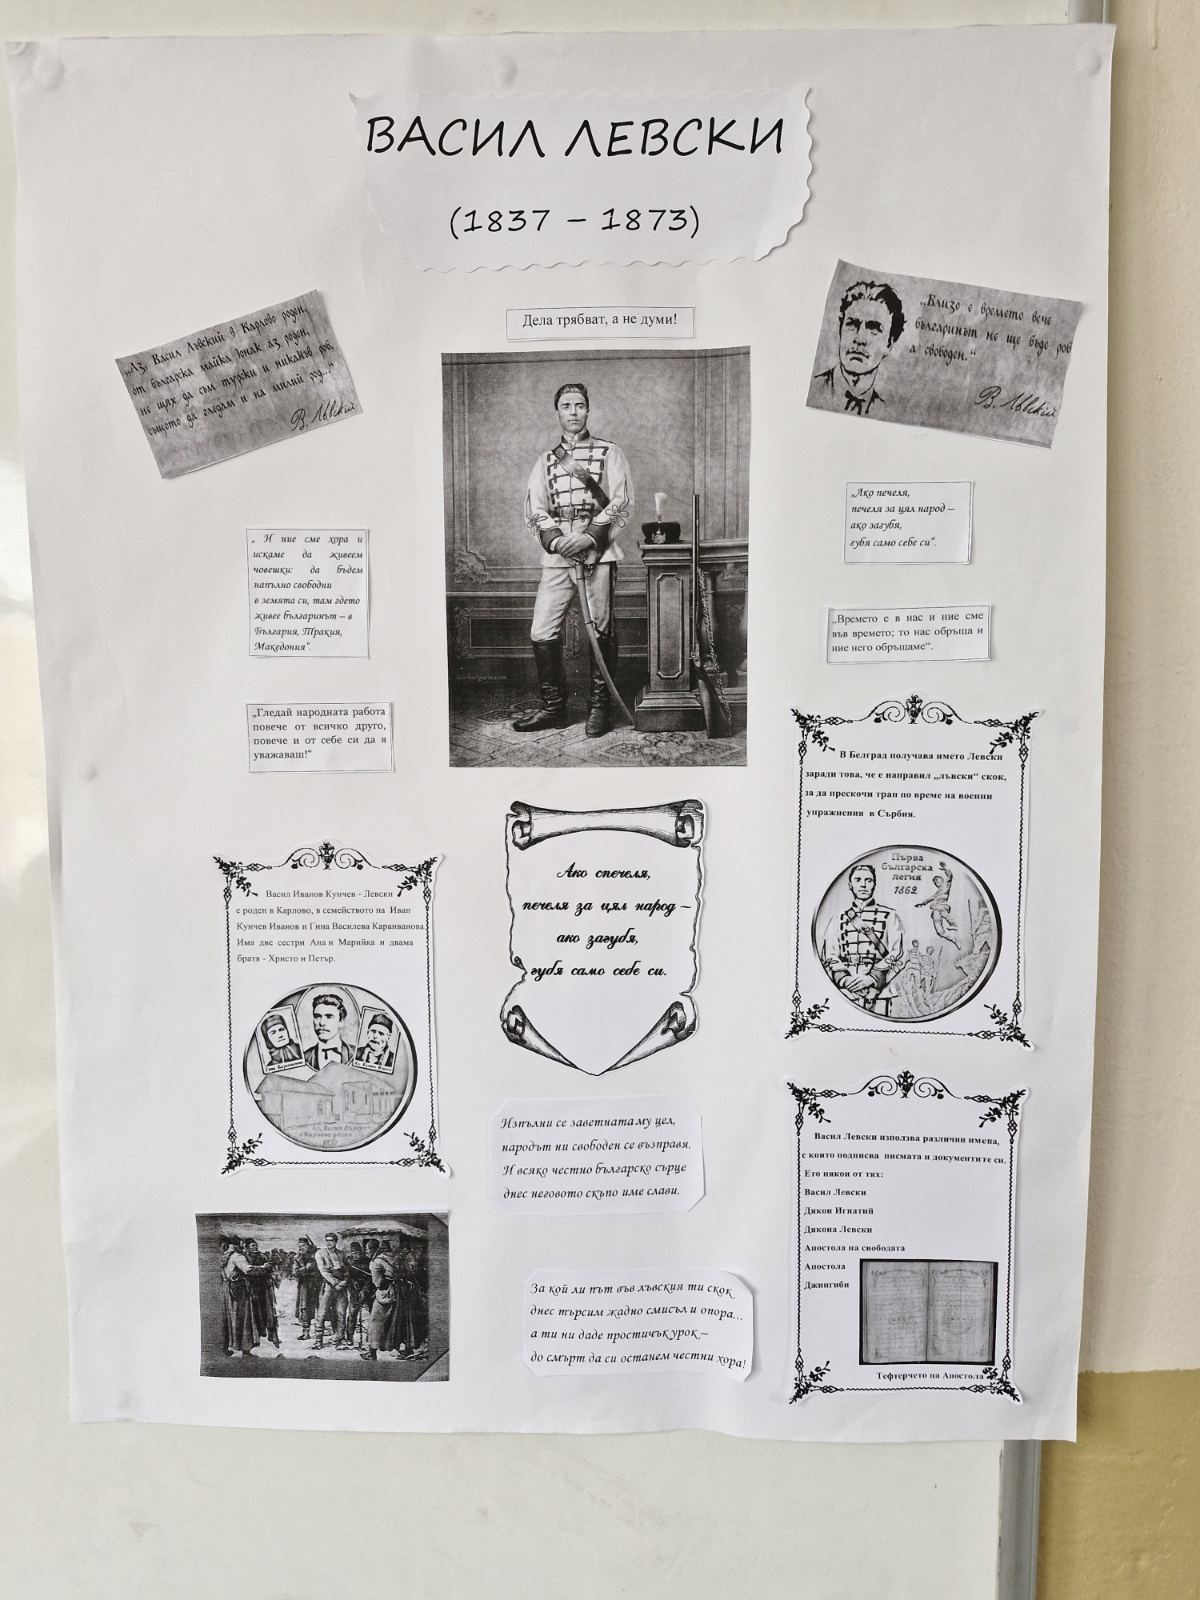 ВАСИЛ ЛЕВСКИ
(1837 – 1873)
Дела трябват, а не думи!
„Аз, Васил Левский в Карлово роден,
от българска майка юнак аз роден,
не щях да съм турски и никакъв роб,
същото да гледам и на милий род..."
В. Лъвский
„Близо е времето вече –
българинът не ще бъде роб
а свободен."
В. Лъвский
„Ако печеля,
печеля за цял народ –
ако загубя,
губя само себе си".
„ И ние сме хора и
искаме да живеем
човешки: да бъдем
напълно свободни
в земята си, там гдето
живее българинът – в
България, Тракия,
Македония".
„Времето е в нас и ние сме
във времето; то нас обръща и
ние него обръщаме".
„Гледай народната работа
повече от всичко друго,
повече и от себе си да я
уважаваш!"
В Белград получава името Левски
заради това, че е направил „лъвски" скок,
за да прескочи трап по време на военни
упражнения в Сърбия.
Първа
българска
легия
1862
Ако спечеля,
печеля за цял народ –
ако загубя,
губя само себе си.
Васил Иванов Кунчев - Левски
е роден в Карлово, в семейството на Иван
Кунчев Иванов и Гина Василева Караиванова.
Има две сестри Ана и Марийка и двама
братя - Христо и Петър.
Аз, Васил Лъвски
в Карлово роден
1837
Изпълни се заветната му цел,
народът ни свободен се възправя.
И всяко честно българско сърце
днес неговото скъпо име слави.
Васил Левски използва различни имена,
с които подписва писмата и документите си.
Ето някои от тях:
Васил Левски
Дякон Игнатий
Дякона Левски
Апостола на свободата
Апостола
Джингиби
Тефтерчето на Апостола
За кой ли път във лъвския ти скок
днес търсим жадно смисъл и опора...
а ти ни даде простичък урок –
до смърт да си останем честни хора!